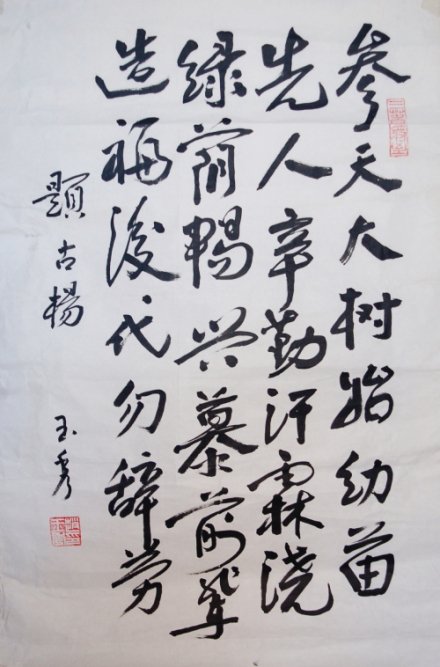 参天大树始幼苗
先人辛勤汗霖浇
绿荫暢兴慕前辈
造福後代勿辞劳
題古楊
玉秀